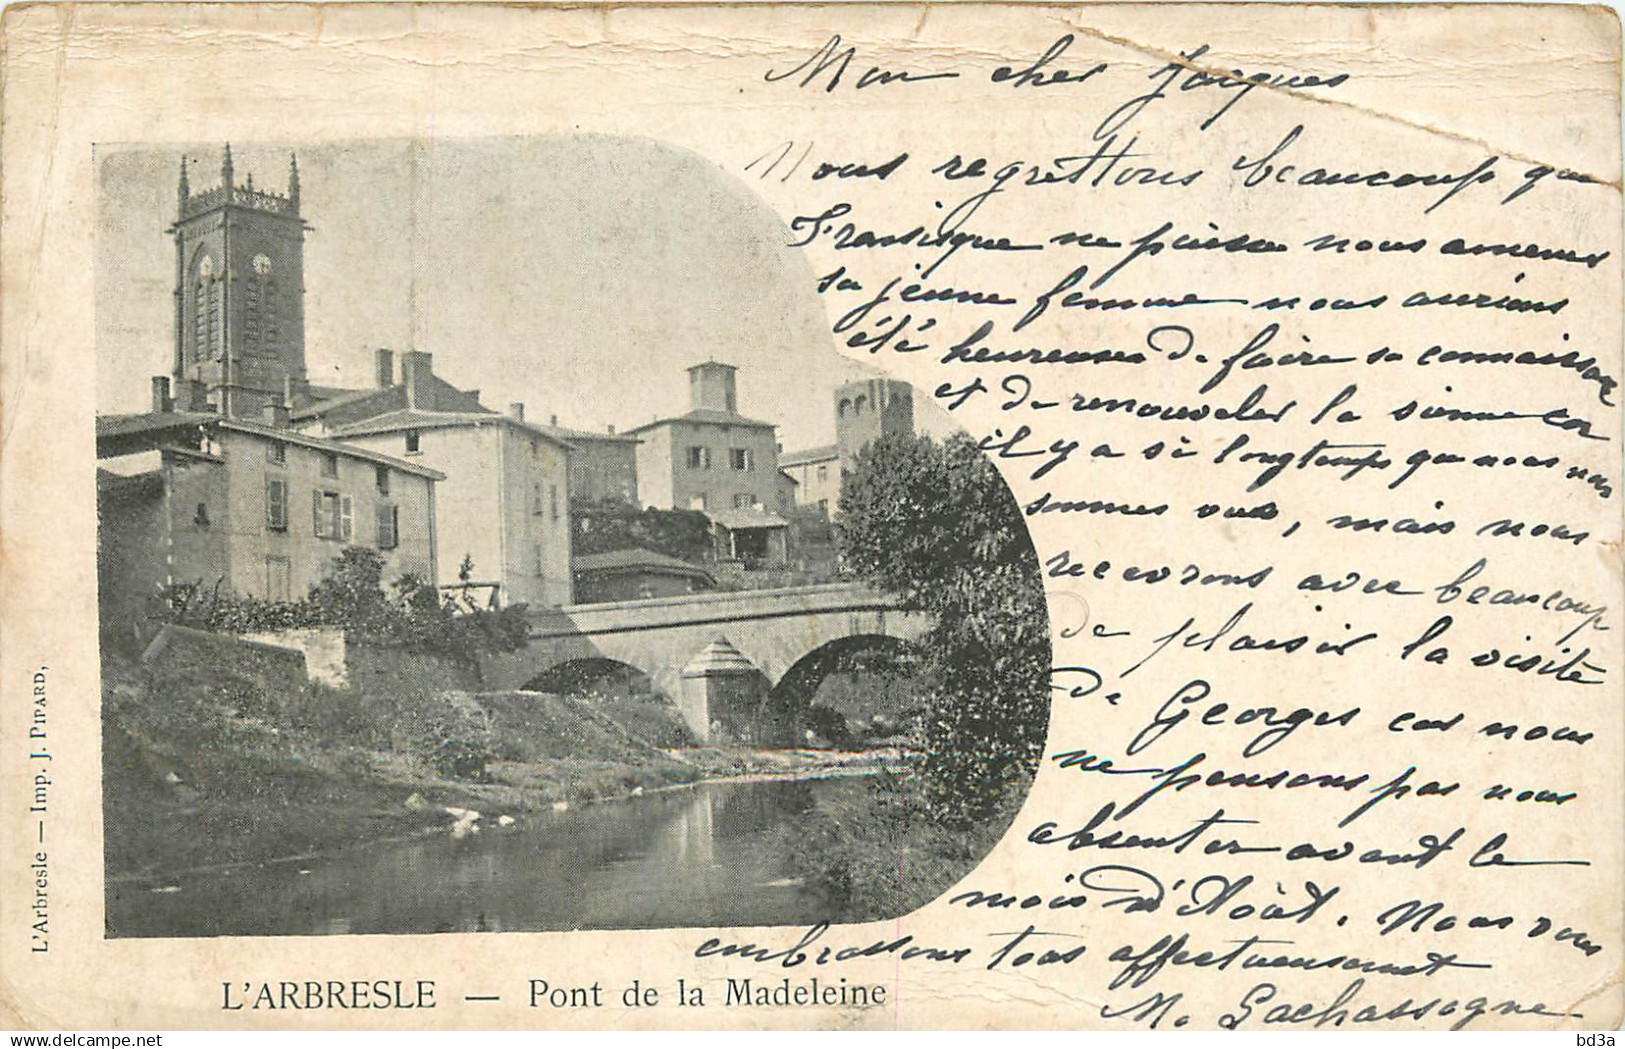 Mon cher Jacques
Nous regrettons beaucoup que
ne puisse nous amener
sa jeune femme nous aurions
été heureuses de faire sa connaissance
et de renouveler la sienne car
il y a si longtemps que nous nous
sommes vus, mais nous
recevrons avec beaucoup
de plaisir la visite
de Georges car nous
ne pensons pas nous
absenter avant le
mois d'Août. Nous vous
embrassons tous affectueusement
M. Gachassagne
L'ARBRESLE — Pont de la Madeleine
L'Arbresle — Imp. J. PIPARD,
delcampe.net
bd3a